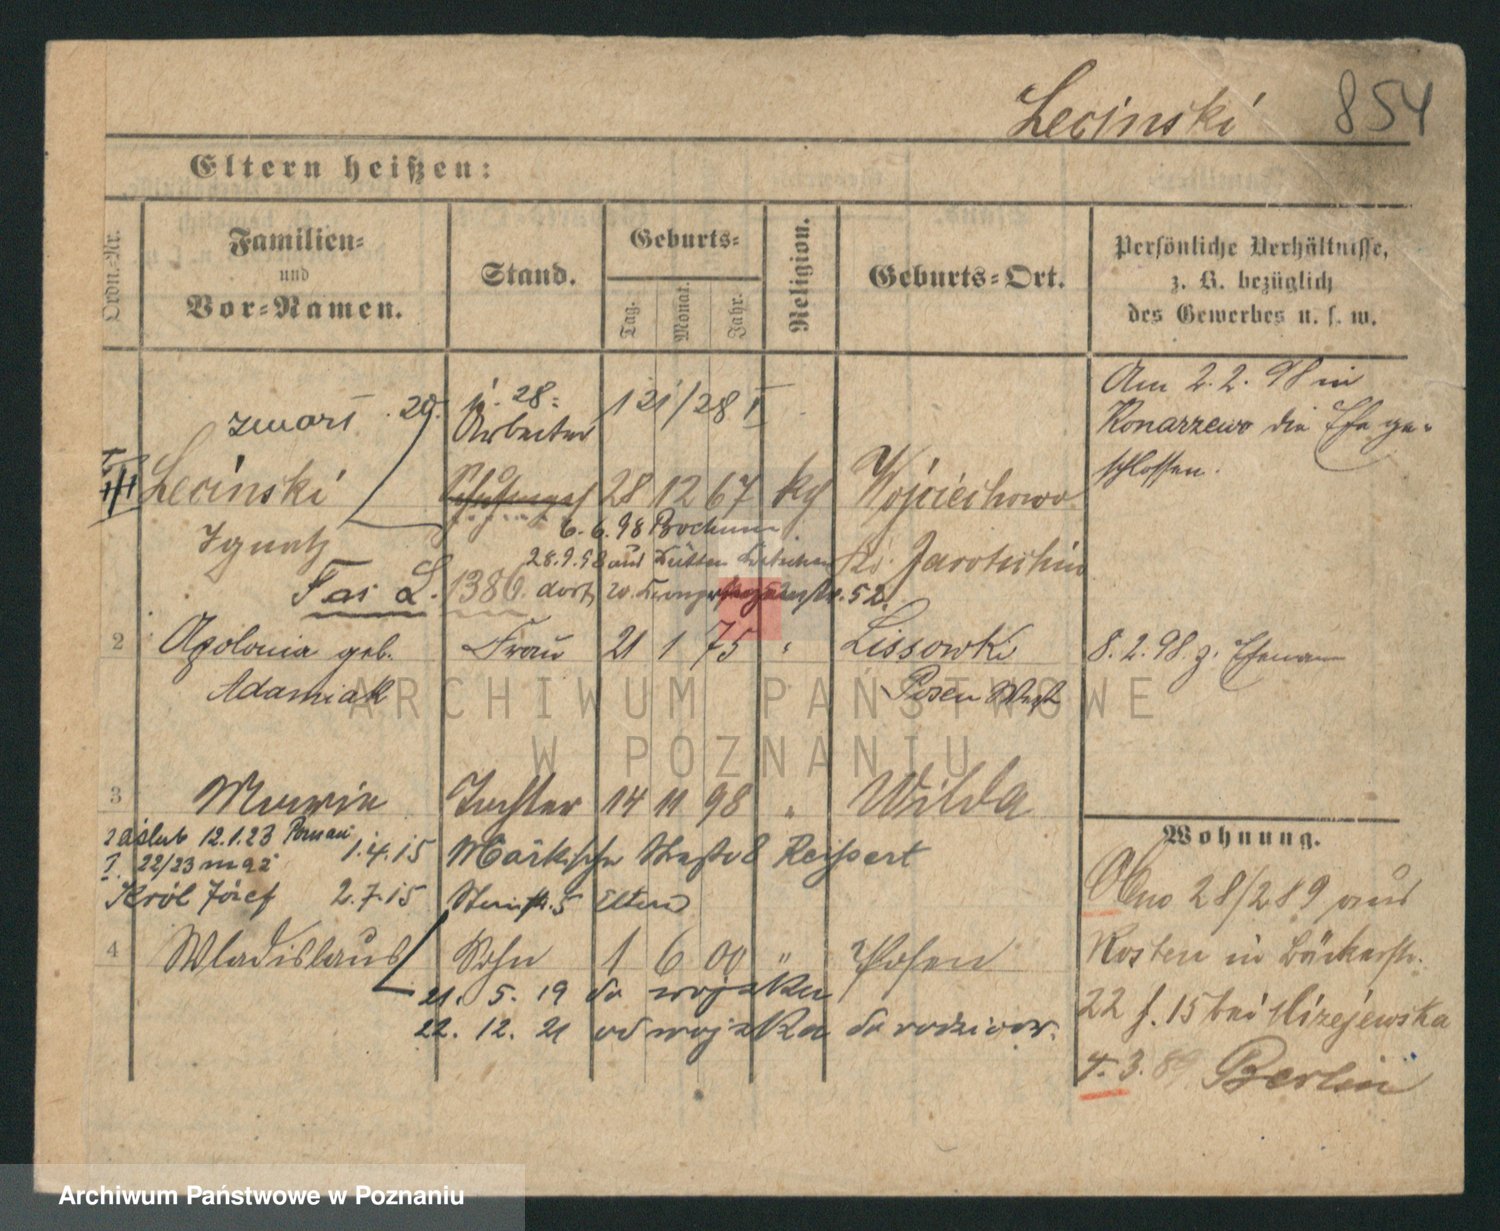 Lecinski 854
Eltern heißen:
Ordn.-Nr.
Familien-
und
Vor-Namen.
Stand.
Geburts-
Tag.
Monat.
Jahr.
Religion.
Geburts-Ort.
Persönliche Verhältnisse,
z. B. bezüglich
des Gewerbes u. s. w.
Am 2.2.98 in
Konarzewo die Ehe ge-
schlossen.
zmarł 29.
Arbeiter
Lecinski 28 12 67 kth Wojciechowo
Ignatz
6.6.98 Bochum
Kr. Jarotschin
28.9.98 aus
1386. dort 52.
2 Apolonia geb. Frau 21 1 75 " Lissowki
Adamiak Posen West
8.2.98. z. Ehemann
ARCHIWUM PAŃSTWOWE
W POZNANIU
3 Maria Tochter 14 11 98 " Wilda
zaślub 12.1.23 Poznań
1.4.15 Märkische Straße 8 Reispert
I. 22/23 mąż
Król Józef 2.7.15 Steinstr. 5 Eltern
4 Wladislaus Sohn 1 6 00 " Posen
21. 5. 19 do wojska
22. 12. 21 od wojska do rodziców.
Wohnung.
28/289 aus
Kosten in Bäckerstr.
22 f. 15 bei Mizejewska
4. 3. 89 Berlin
Archiwum Państwowe w Poznaniu